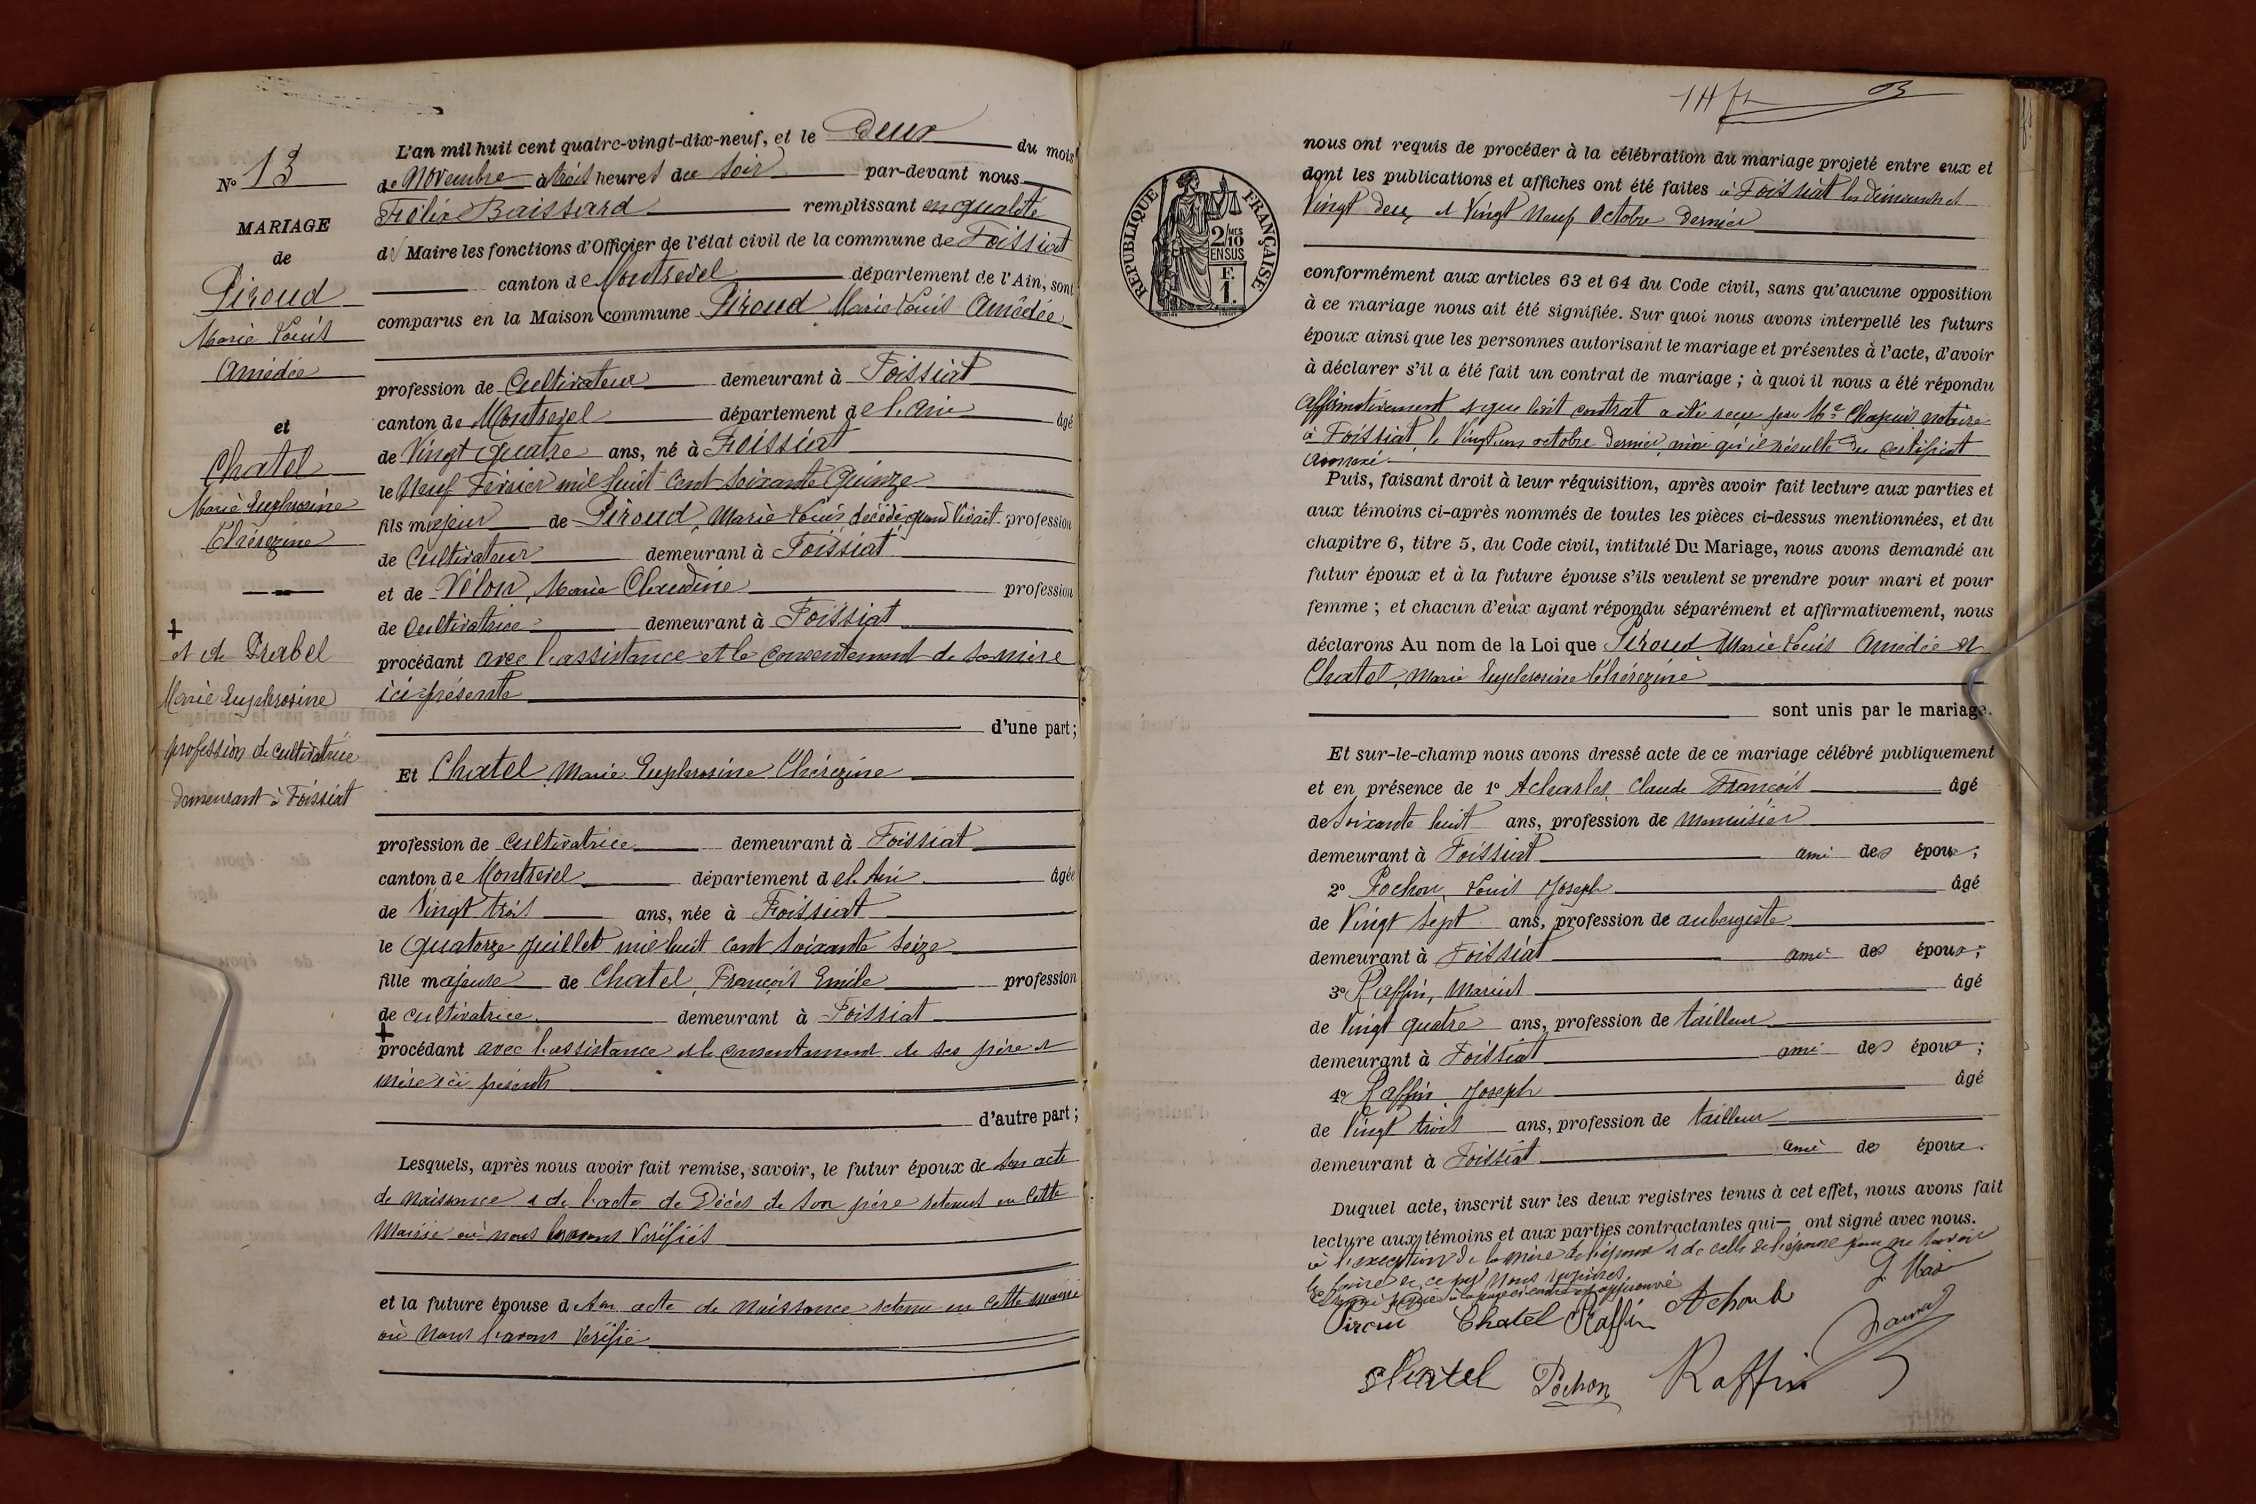 L'an mil huit cent quatre-vingt-dix-neuf, et le Deux du mois
N° 13
de Novembre à trois heures du soir par-devant nous
Félix Baissard remplissant en qualité
MARIAGE
de Maire les fonctions d'Officier de l'état civil de la commune de Foissiat
de
canton de Montrevel département de l'Ain, sont
Piroud
comparus en la Maison commune Piroud Marie Louis Amédée
Marie Louis
Amédée
profession de Cultivateur demeurant à Foissiat
canton de Montrevel département de l'Ain âgé
et
de Vingt quatre ans, né à Foissiat
Chatel
le Neuf Février mil huit cent soixante Quinze
Marie Euphrosine
fils majeur de Piroud, Marie Louis, décédé quand vivait profession
Thérézine
de Cultivateur demeurant à Foissiat
et de Vélon, Marie Claudine profession
de Cultivatrice demeurant à Foissiat
+ et de Prabel
procédant avec l'assistance et le consentement de sa mère
Marie Euphrosine
ici présente
profession de cultivatrice
d'une part;
demeurant à Foissiat
Et Chatel, Marie Euphrosine Thérézine
profession de cultivatrice demeurant à Foissiat
canton de Montrevel département de l'Ain âgée
de Vingt trois ans, née à Foissiat
le Quatorze Juillet mil huit cent soixante seize
fille majeure de Chatel, François Emile profession
de cultivatrice demeurant à Foissiat
+
procédant avec l'assistance et le consentement de ses père et
mère ici présents
d'autre part;
Lesquels, après nous avoir fait remise, savoir, le futur époux de son acte
de naissance & de l'acte de Décès de son père retenus en cette
Mairie où nous les avons vérifiés
et la future épouse de son acte de naissance retenu en cette mairie
où nous l'avons vérifié
nous ont requis de procéder à la célébration du mariage projeté entre eux et
dont les publications et affiches ont été faites à Foissiat les dimanches
Vingt deux et Vingt Neuf Octobre dernier
RÉPUBLIQUE FRANÇAISE
2/10 MES
EN SUS
F.
1.
conformément aux articles 63 et 64 du Code civil, sans qu'aucune opposition
à ce mariage nous ait été signifiée. Sur quoi nous avons interpellé les futurs
époux ainsi que les personnes autorisant le mariage et présentes à l'acte, d'avoir
à déclarer s'il a été fait un contrat de mariage; à quoi il nous a été répondu
affirmativement et que ledit contrat a été reçu par Me Chapuis notaire
à Foissiat, le Vingt un octobre dernier, ainsi qu'il résulte du certificat
annexé.
Puis, faisant droit à leur réquisition, après avoir fait lecture aux parties et
aux témoins ci-après nommés de toutes les pièces ci-dessus mentionnées, et du
chapitre 6, titre 5, du Code civil, intitulé Du Mariage, nous avons demandé au
futur époux et à la future épouse s'ils veulent se prendre pour mari et pour
femme; et chacun d'eux ayant répondu séparément et affirmativement, nous
déclarons Au nom de la Loi que Piroud Marie Louis Amédée et
Chatel, Marie Euphrosine Thérézine
sont unis par le mariage.
Et sur-le-champ nous avons dressé acte de ce mariage célébré publiquement
et en présence de 1° Claude François âgé
de soixante huit ans, profession de menuisier
demeurant à Foissiat ami des époux;
2° Pochon, Louis Joseph âgé
de Vingt sept ans, profession de aubergiste
demeurant à Foissiat ami des époux;
3° Raffin, Marius âgé
de Vingt quatre ans, profession de tailleur
demeurant à Foissiat ami des époux;
4° Raffin, Joseph âgé
de Vingt trois ans, profession de tailleur
demeurant à Foissiat ami des époux.
Duquel acte, inscrit sur les deux registres tenus à cet effet, nous avons fait
lecture aux témoins et aux parties contractantes qui ont signé avec nous.
à l'exception de la mère de l'époux & de celle de l'épouse pour ne savoir
le faire de ce par Nous requises
Chatel Raffin
Chatel Pochon Raffin